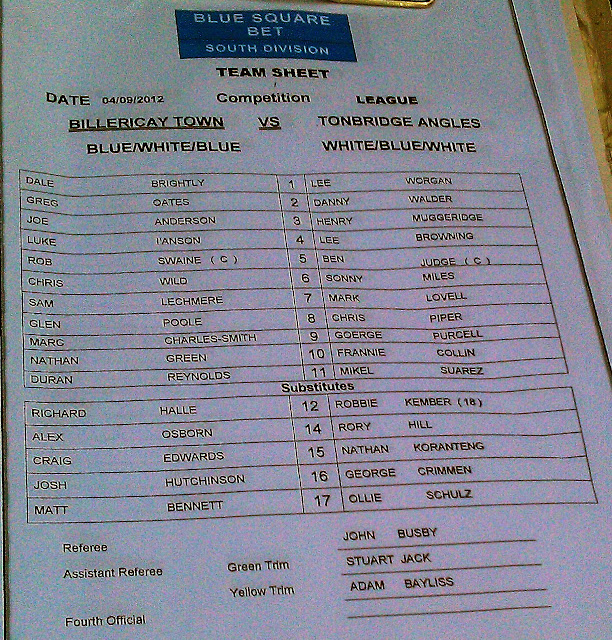 BLUE SQUARE
BET
SOUTH DIVISION
TEAM SHEET
DATE 04/09/2012 Competition LEAGUE
BILLERICAY TOWN VS TONBRIDGE ANGLES
BLUE/WHITE/BLUE WHITE/BLUE/WHITE
DALE BRIGHTLY 1 LEE WORGAN
GREG OATES 2 DANNY WALDER
JOE ANDERSON 3 HENRY MUGGERIDGE
LUKE I'ANSON 4 LEE BROWNING
ROB SWAINE ( C ) 5 BEN JUDGE ( C )
CHRIS WILD 6 SONNY MILES
SAM LECHMERE 7 MARK LOVELL
GLEN POOLE 8 CHRIS PIPER
MARC CHARLES-SMITH 9 GOERGE PURCELL
NATHAN GREEN 10 FRANNIE COLLIN
DURAN REYNOLDS 11 MIKEL SUAREZ
Substitutes
RICHARD HALLE 12 ROBBIE KEMBER (18)
ALEX OSBORN 14 RORY HILL
CRAIG EDWARDS 15 NATHAN KORANTENG
JOSH HUTCHINSON 16 GEORGE CRIMMEN
MATT BENNETT 17 OLLIE SCHULZ
Referee JOHN BUSBY
Assistant Referee Green Trim STUART JACK
Yellow Trim ADAM BAYLISS
Fourth Official